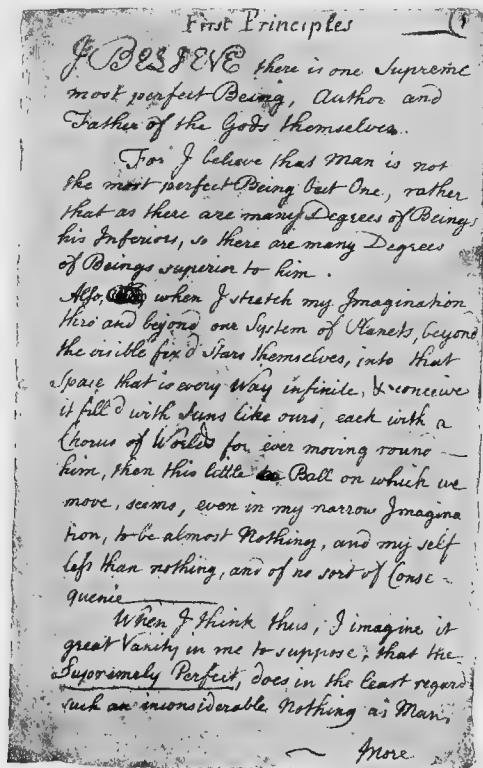 First Principles
1
I BELIEVE there is one Supreme
most perfect Being, Author and
Father of the Gods themselves.
For I believe that Man is not
the most perfect Being but One, rather
that as there are many Degrees of Beings
his Inferiors, so there are many Degrees
of Beings superior to him.
Also, when I stretch my Imagination
thro' and beyond our System of Planets, beyond
the visible fix'd Stars themselves, into that
Space that is every Way infinite, & conceive
it fill'd with Suns like ours, each with a
Chorus of Worlds for ever moving round
him, then this little Ball on which we
move, seems, even in my narrow Imagina
tion, to be almost Nothing, and my self
less than nothing, and of no sort of Conse-
quence
When I think thus, I imagine it
great Vanity in me to suppose, that the
Supremely Perfect, does in the least regard
such an inconsiderable Nothing as Man.
More